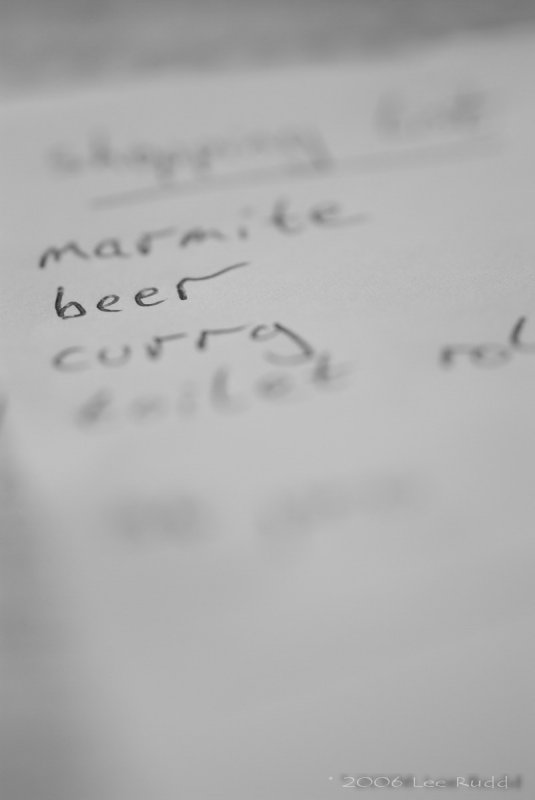 shopping list
marmite
beer
curry
toilet rol
* 2006 Lee Rudd